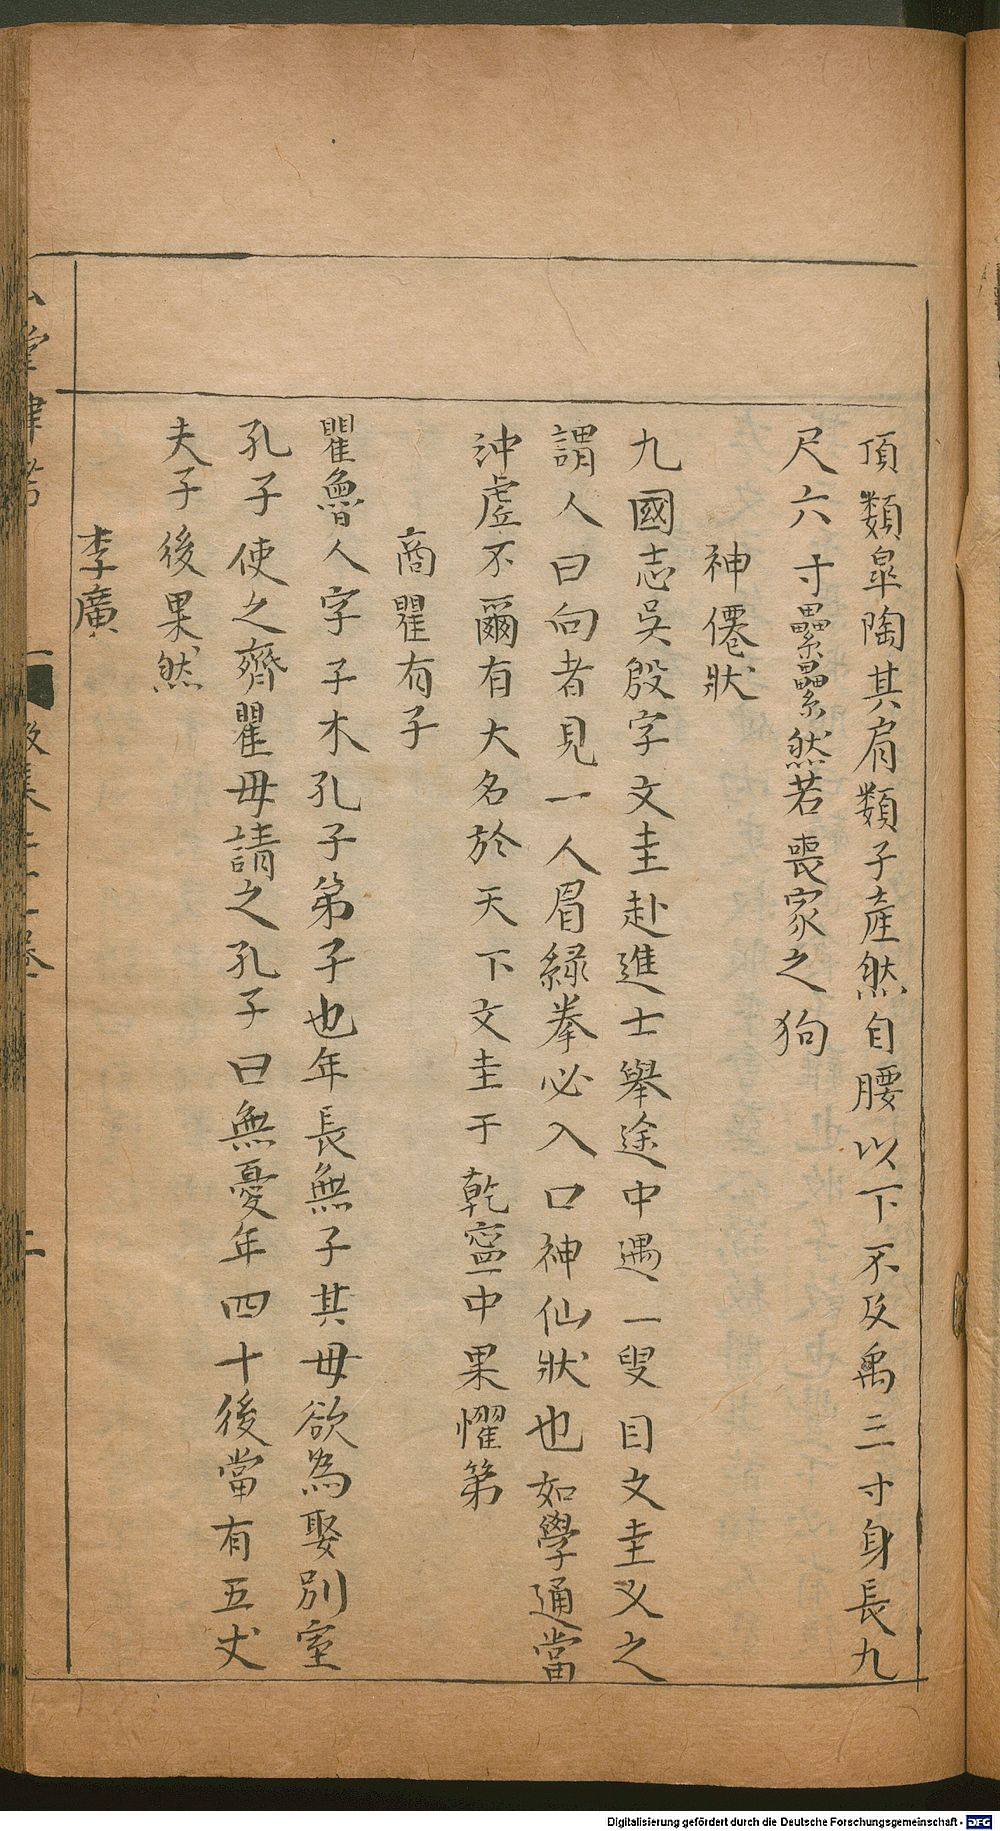 項類皐陶其肩類子產然自腰以下不及禹三寸身長九
尺六寸纍纍然若喪家之狗
神僊狀
九國志吳殷字文圭赴進士舉途中遇一叟目文圭乂之
謂人曰向者見一人眉綠拳必入口神仙狀也如學通當
沖虛不爾有大名於天下文圭于乾寧中果懼第
商瞿有子
瞿魯人字子木孔子弟子也年長無子其母欲為娶別室
孔子使之齊瞿母請之孔子曰無憂年四十後當有五丈
夫子後果然
李廣
Digitalisierung gefördert durch die Deutsche Forschungsgemeinschaft - DFG